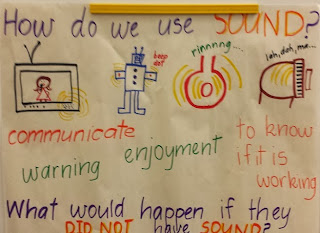 How do we use SOUND?
beep
dot
rinnnng...
lah, doh, me...
communicate
warning
enjoyment
to know
if it is
working
What would happen if they
DID NOT have SOUND?